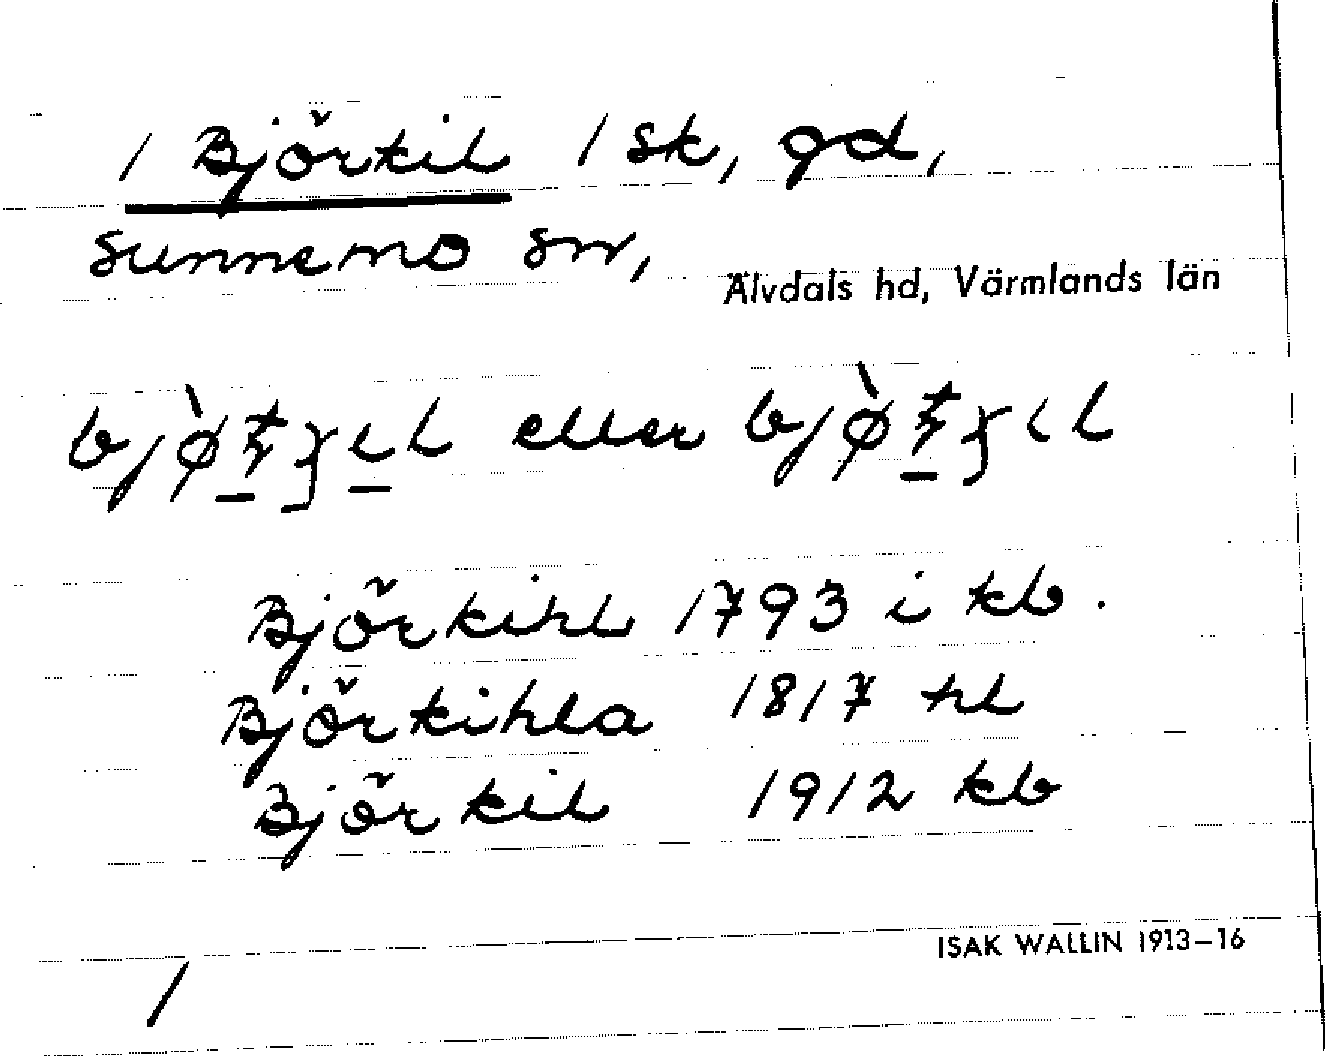 1 Björkil 1 sk, gd,
Sunnemo sn,
Älvdals hd, Värmlands län
eller
Björkihl 1793 i kb.
Björkihla 1817 hl
Björkil 1912 kb
ISAK WALLIN 1913–16
1